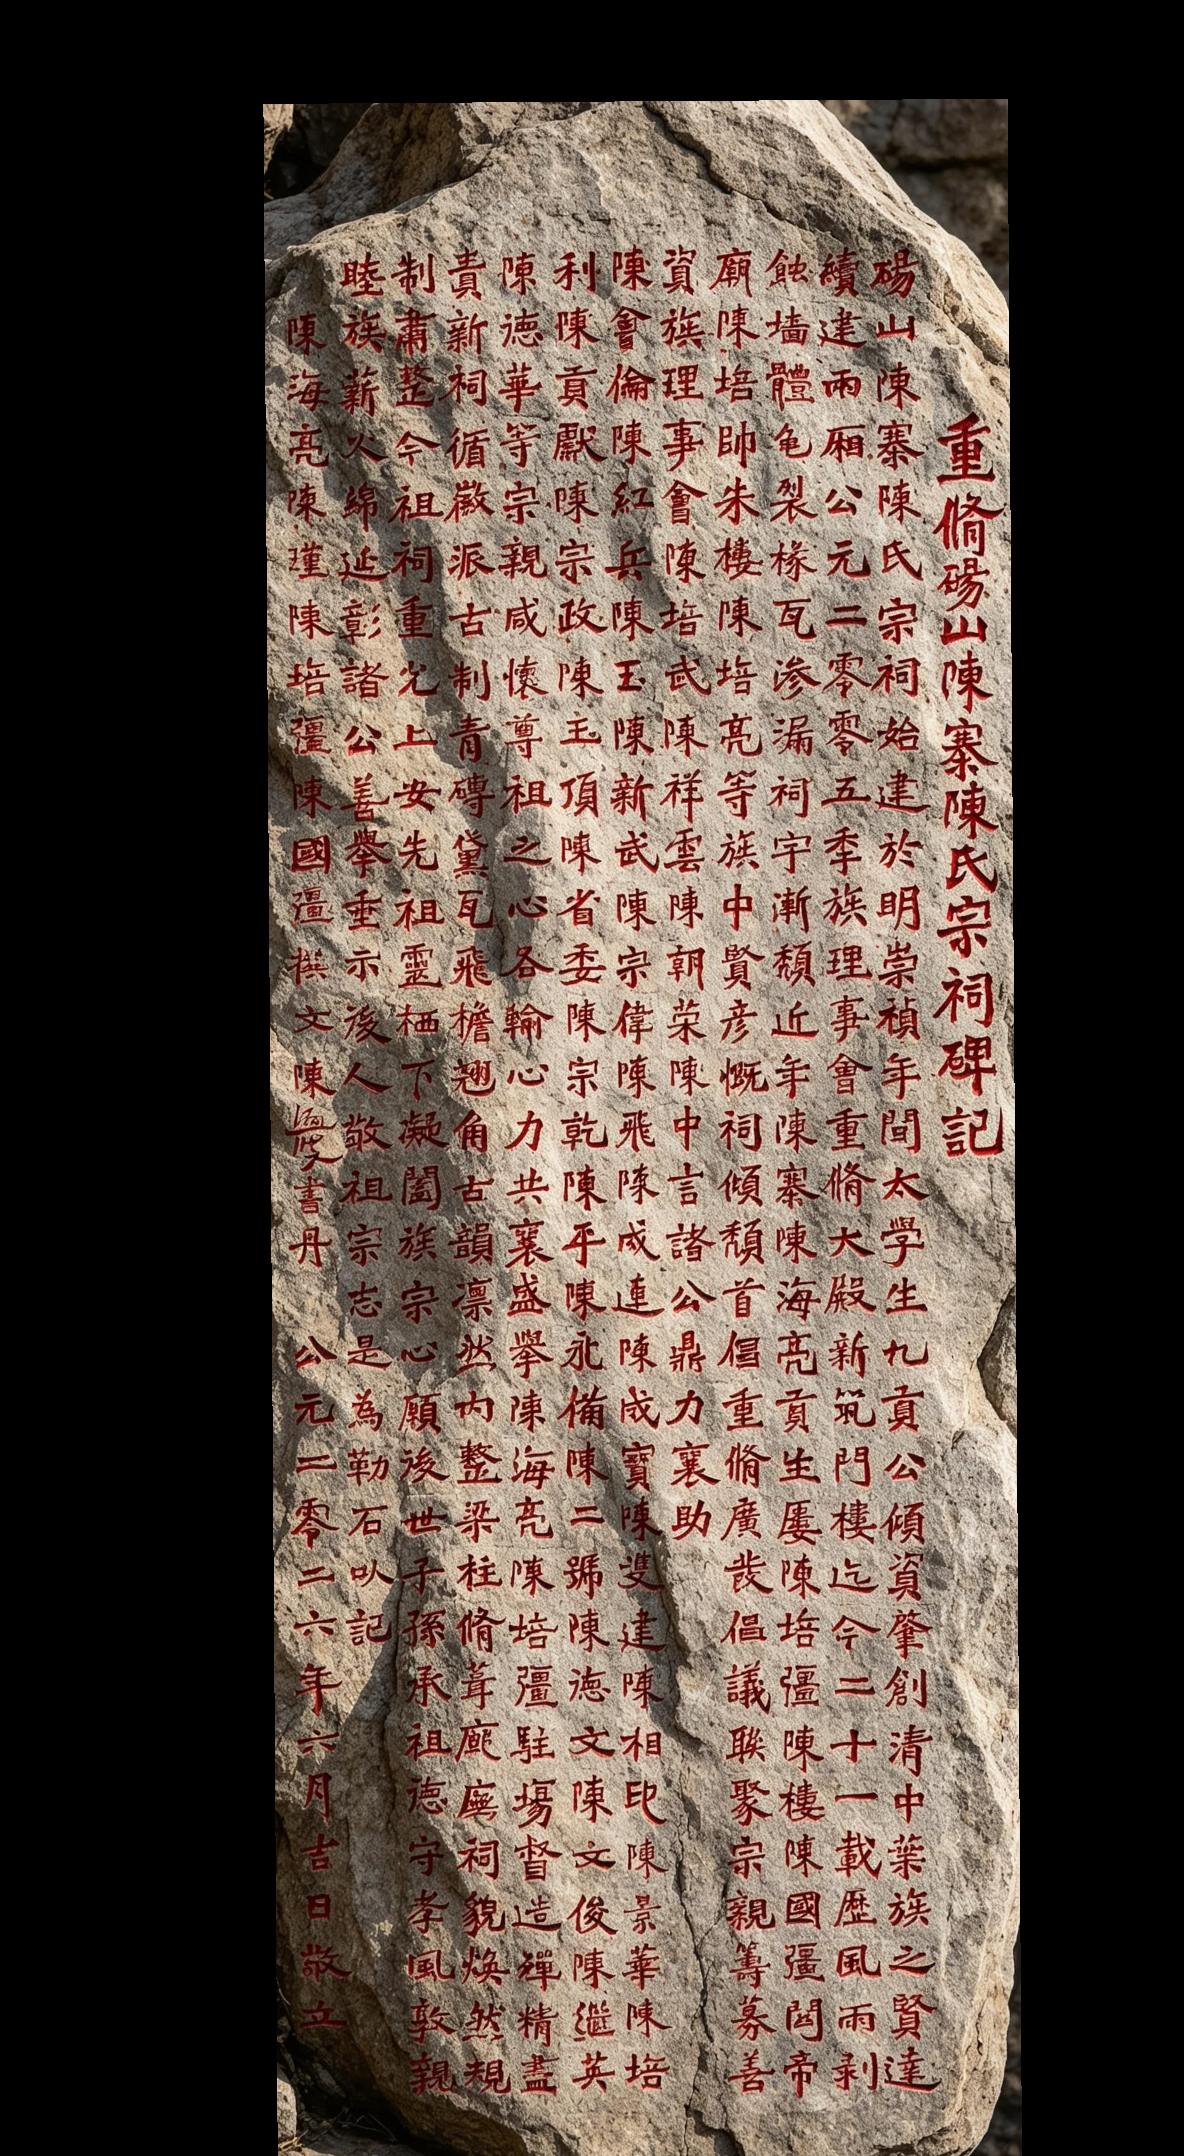 重脩碭山陳寨陳氏宗祠碑記
碭山陳寨陳氏宗祠始建於明崇禎年間太學生九貢公傾資肇創清中葉族之賢達
續建兩厢公元二零零五季族理事會重脩大殿新筑門樓迄今二十一載歷風雨剥
蝕墙體龟裂椽瓦渗漏祠宇漸頹近年陳寨陳海亮貢生屢陳培彊陳樓陳國彊閻帝
廟陳培帥朱樓陳培亮等族中賢彦慨祠傾頹首倡重脩廣發倡議聯聚宗親籌募善
資族理事會陳培武陳祥雲陳朝荣陳中言諸公鼎力襄助
陳會倫陳紅兵陳玉陳新武陳宗偉陳飛陳成連陳成寶陳雙建陳相民陳景華陳培
利陳貢獻陳宗政陳玉頂陳省委陳宗乾陳平陳永備陳二號陳德文陳文俊陳繼英
陳德華等宗親咸懷尊祖之心各輸心力共襄盛舉陳海亮陳培彊駐場督造殫精盡
責新祠循徽派古制青磚黛瓦飛檐翹角古韻凛然内整梁柱脩葺廊廡祠貌焕然規
制肅整今祖祠重光上安先祖靈栖下凝闔族宗心願後世子孫承祖德守孝風敦親
睦族薪火綿延彰諸公善舉垂示後人敬祖宗志是為勒石以記
陳海亮陳瑾陳培彊陳國彊撰文陳書丹 公元二零二六年六月吉日敬立